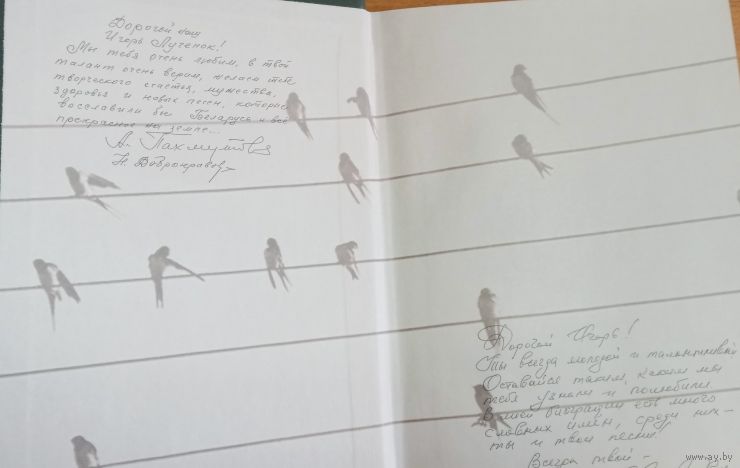 Дорогой наш
Игорь Лученок!
Мы тебя очень любим, в твой
талант очень верим, желаем тебе
творческого счастья, мужества,
здоровья и новых песен, которые
восславили бы Беларусь и всё
прекрасное на земле...
А. Пахмутова
Н. Добронравов
Дорогой Игорь!
Ты всегда молодой и талантливый
Оставайся таким, каким мы
тебя узнали и полюбили
В твоей биографии есть много
славных имён, среди них –
ты и твои песни!
Всегда твой –
www.ay.by